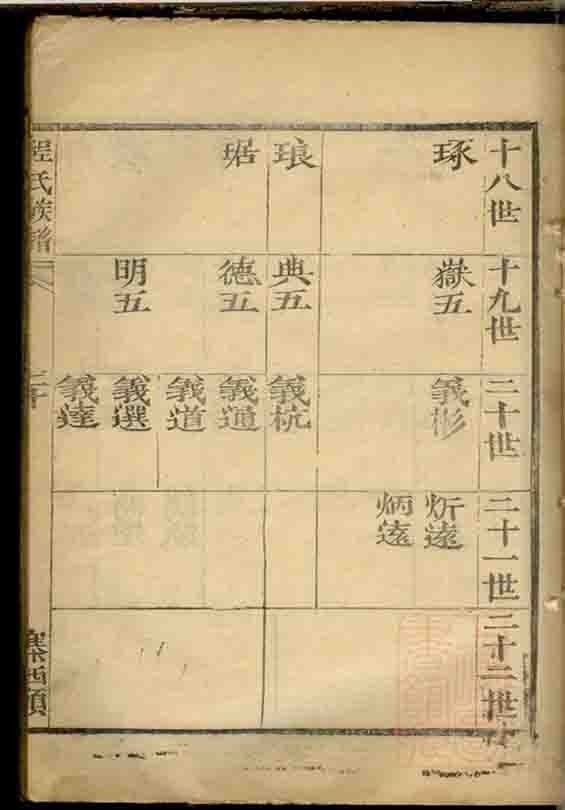 十八世
十九世
二十世
二十一世
二十二世
琢
嶽五
義彬
炘遠
炳遠
琅
典五
義杭
琚
德五
義通
義道
明五
義選
義達
程氏族譜
二十